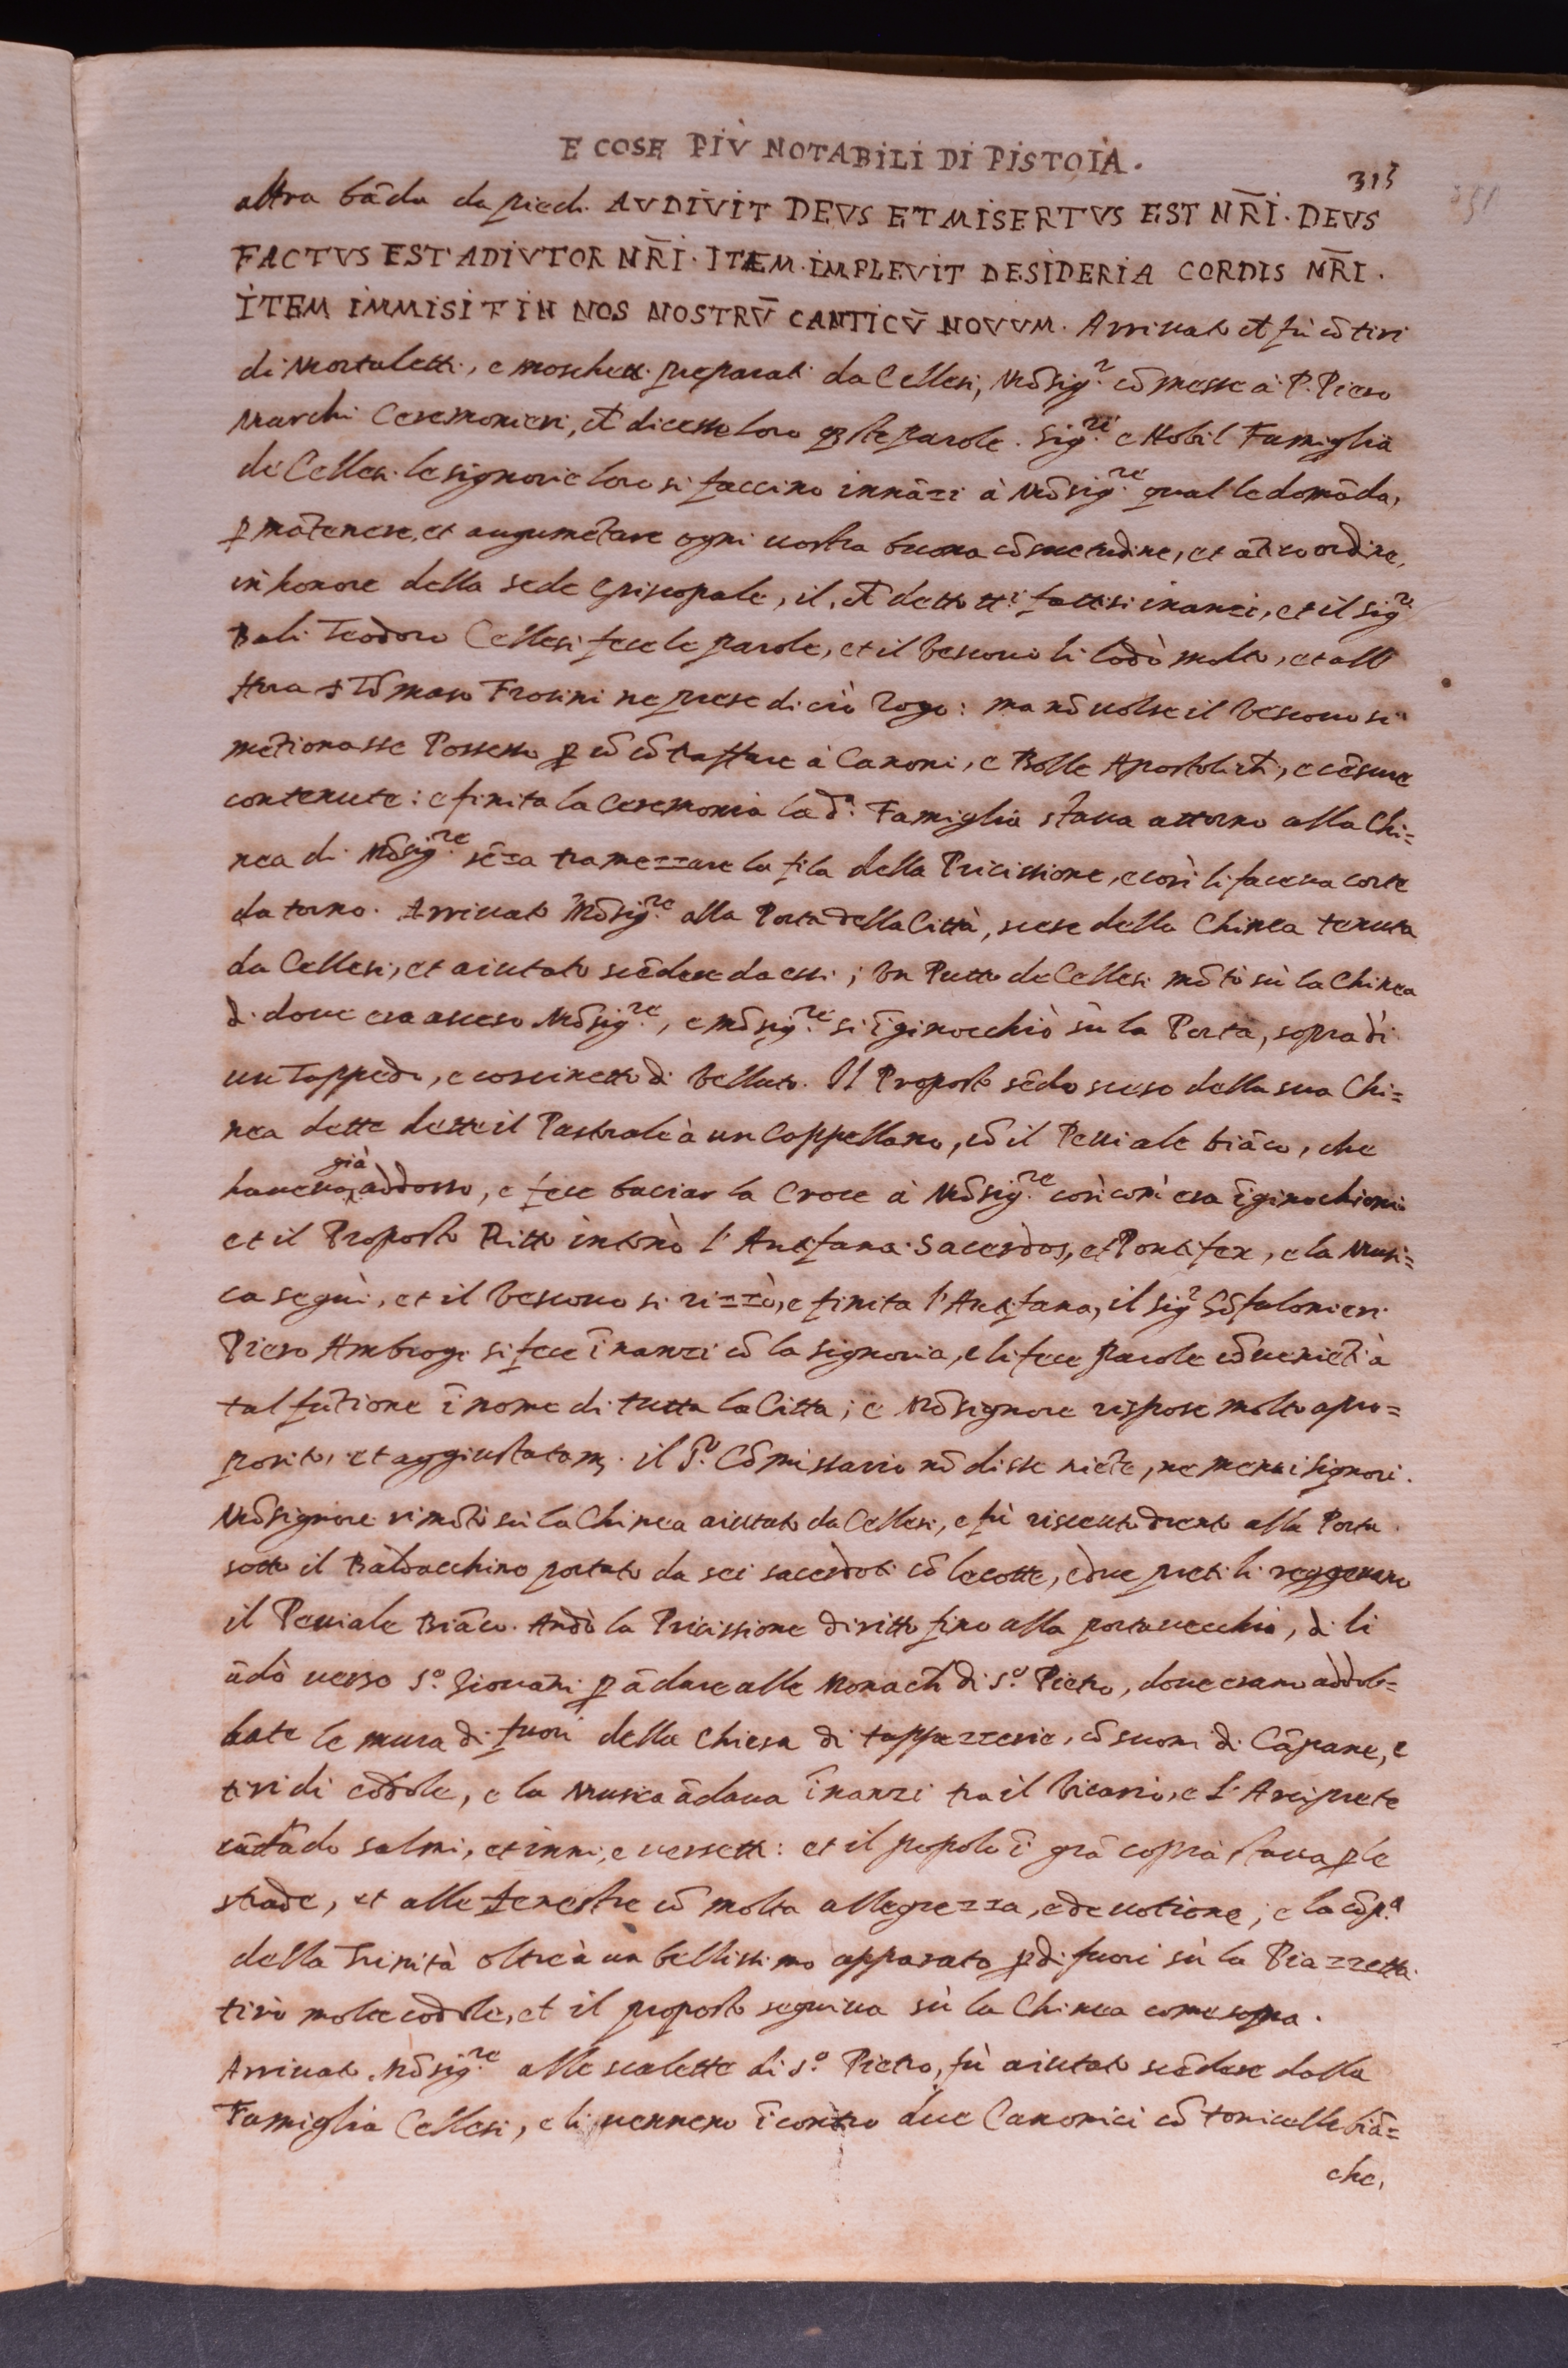 E COSE PIÙ NOTABILI DI PISTOIA.
315
altra bāda da piedi. AVDIVIT DEVS ET MISERTVS EST NR̄I. DEVS
FACTVS EST ADIVTOR NR̄I. ITEM. IMPLEVIT DESIDERIA CORDIS NR̄I.
ITEM IMMISIT IN NOS NOSTRV̄ CANTICV̄ NOVVM. Arriuato ch̄ fù cō tiri
di Mortaletti, e moschetti preparati da Cellesi, Mōsig.r cōmesse à P. Piero
Marchi Ceremonieri, ch̄ dicesse loro queste parole. Sig.ri e Nobil Famiglia
de Cellesi le signorie loro si faccino innāzi à Mōsig.re qual le domāda,
p mātenere, et augumētare ogni vostra buona cōsuetudine, et āticoordine,
in honore della sede Episcopale, il ch̄ detto tt.i fattisi inanzi, et il sig.re
Balì Teodoro Cellesi fece le parole, et il Vescouo li lodò molto, et all
hora s Tōmaso Frosini ne prese di ciò Rogo: ma nō uolse il Vescouo si
mētionasse Possesso p nō cōtraffare à Canoni, e Bolle Apostolich̄, e cēsure
contenute: e finita la Ceremonia la d.a Famiglia staua attorno alla Chi=
nea di Mōsig.re sēza tramezzare la fila della Pricissione, e così li faceua corte
da torno. Arriuato Mōsig.re alla Porta della Città, scese della Chinea tenuta
da Cellesi, et aiutato scēdere da essi; Vn Putto de Cellesi mōtò sù la Chinea
di doue era asceso Mōsig.re, e mōsig.re si īginocchiò sù la Porta, sopra di
un Tappedo, e coscinetto di Velluto. Il Proposto sēdo sceso della sua Chi=
nea dette dette il Pastrale à un Cappellano, cō il Peuiale biāco, che
haueua già addosso, e fece baciar la Croce à Mōsig.re così com' era īginochioni
et il Proposto Ritto intonò l'Antifana Sacerdos, et Pontifex, e la Musi=
ca seguì, et il Vescouo si rizzò, e finita l'Antifana, il sig.r Gōfalonieri
Piero Ambrogi si fece īnanzi cō la signoria, e li fece parole cōueniēti à
tal fūtione ī nome di tutta la Citta; e Mōsignore rispose molto apro=
posito, et aggiustatam. il S.r Cōmissario nō disse niēte, ne meno i signori.
Mōsignore rimōtò sù la Chinea aiutato da Cellesi, e fù riceuuto drento alla Porta
sotto il Baldacchino portato da sei sacerdoti cō le cotte, e due preti li reggeuano
il Peuiale Biāco. Andò la Pricissione diritto fino alla porta uecchia, di li
ādò uerso S.o Giouāni p ādare alle Monach̄ di S.o Pietro, doue erano addob=
bate le mura di fuori della Chiesa di tappezzerie, cō suoni di Cāpane, e
tiri di codole, e la Musica ādaua īnanzi tra il Vicario, e L'Arciprete
cātādo salmi, et inni, e uersetti: et il popolo ī grā copia staua p le
strade, et alle fenestre cō molta allegrezza, e deuotione; e la cōp.a
della Trinità oltre à un bellissimo apparato p di fuori sù la Piazzetta
tirò molte codole, et il proposto seguiua sù la Chinea come sopra.
Arriuato Mōsig.re alle scalette di S.o Pietro, fù aiutato scēdere dalla
Famiglia Cellesi, e li uennero īcontro due Canonici cō tonicelle biā=
che,